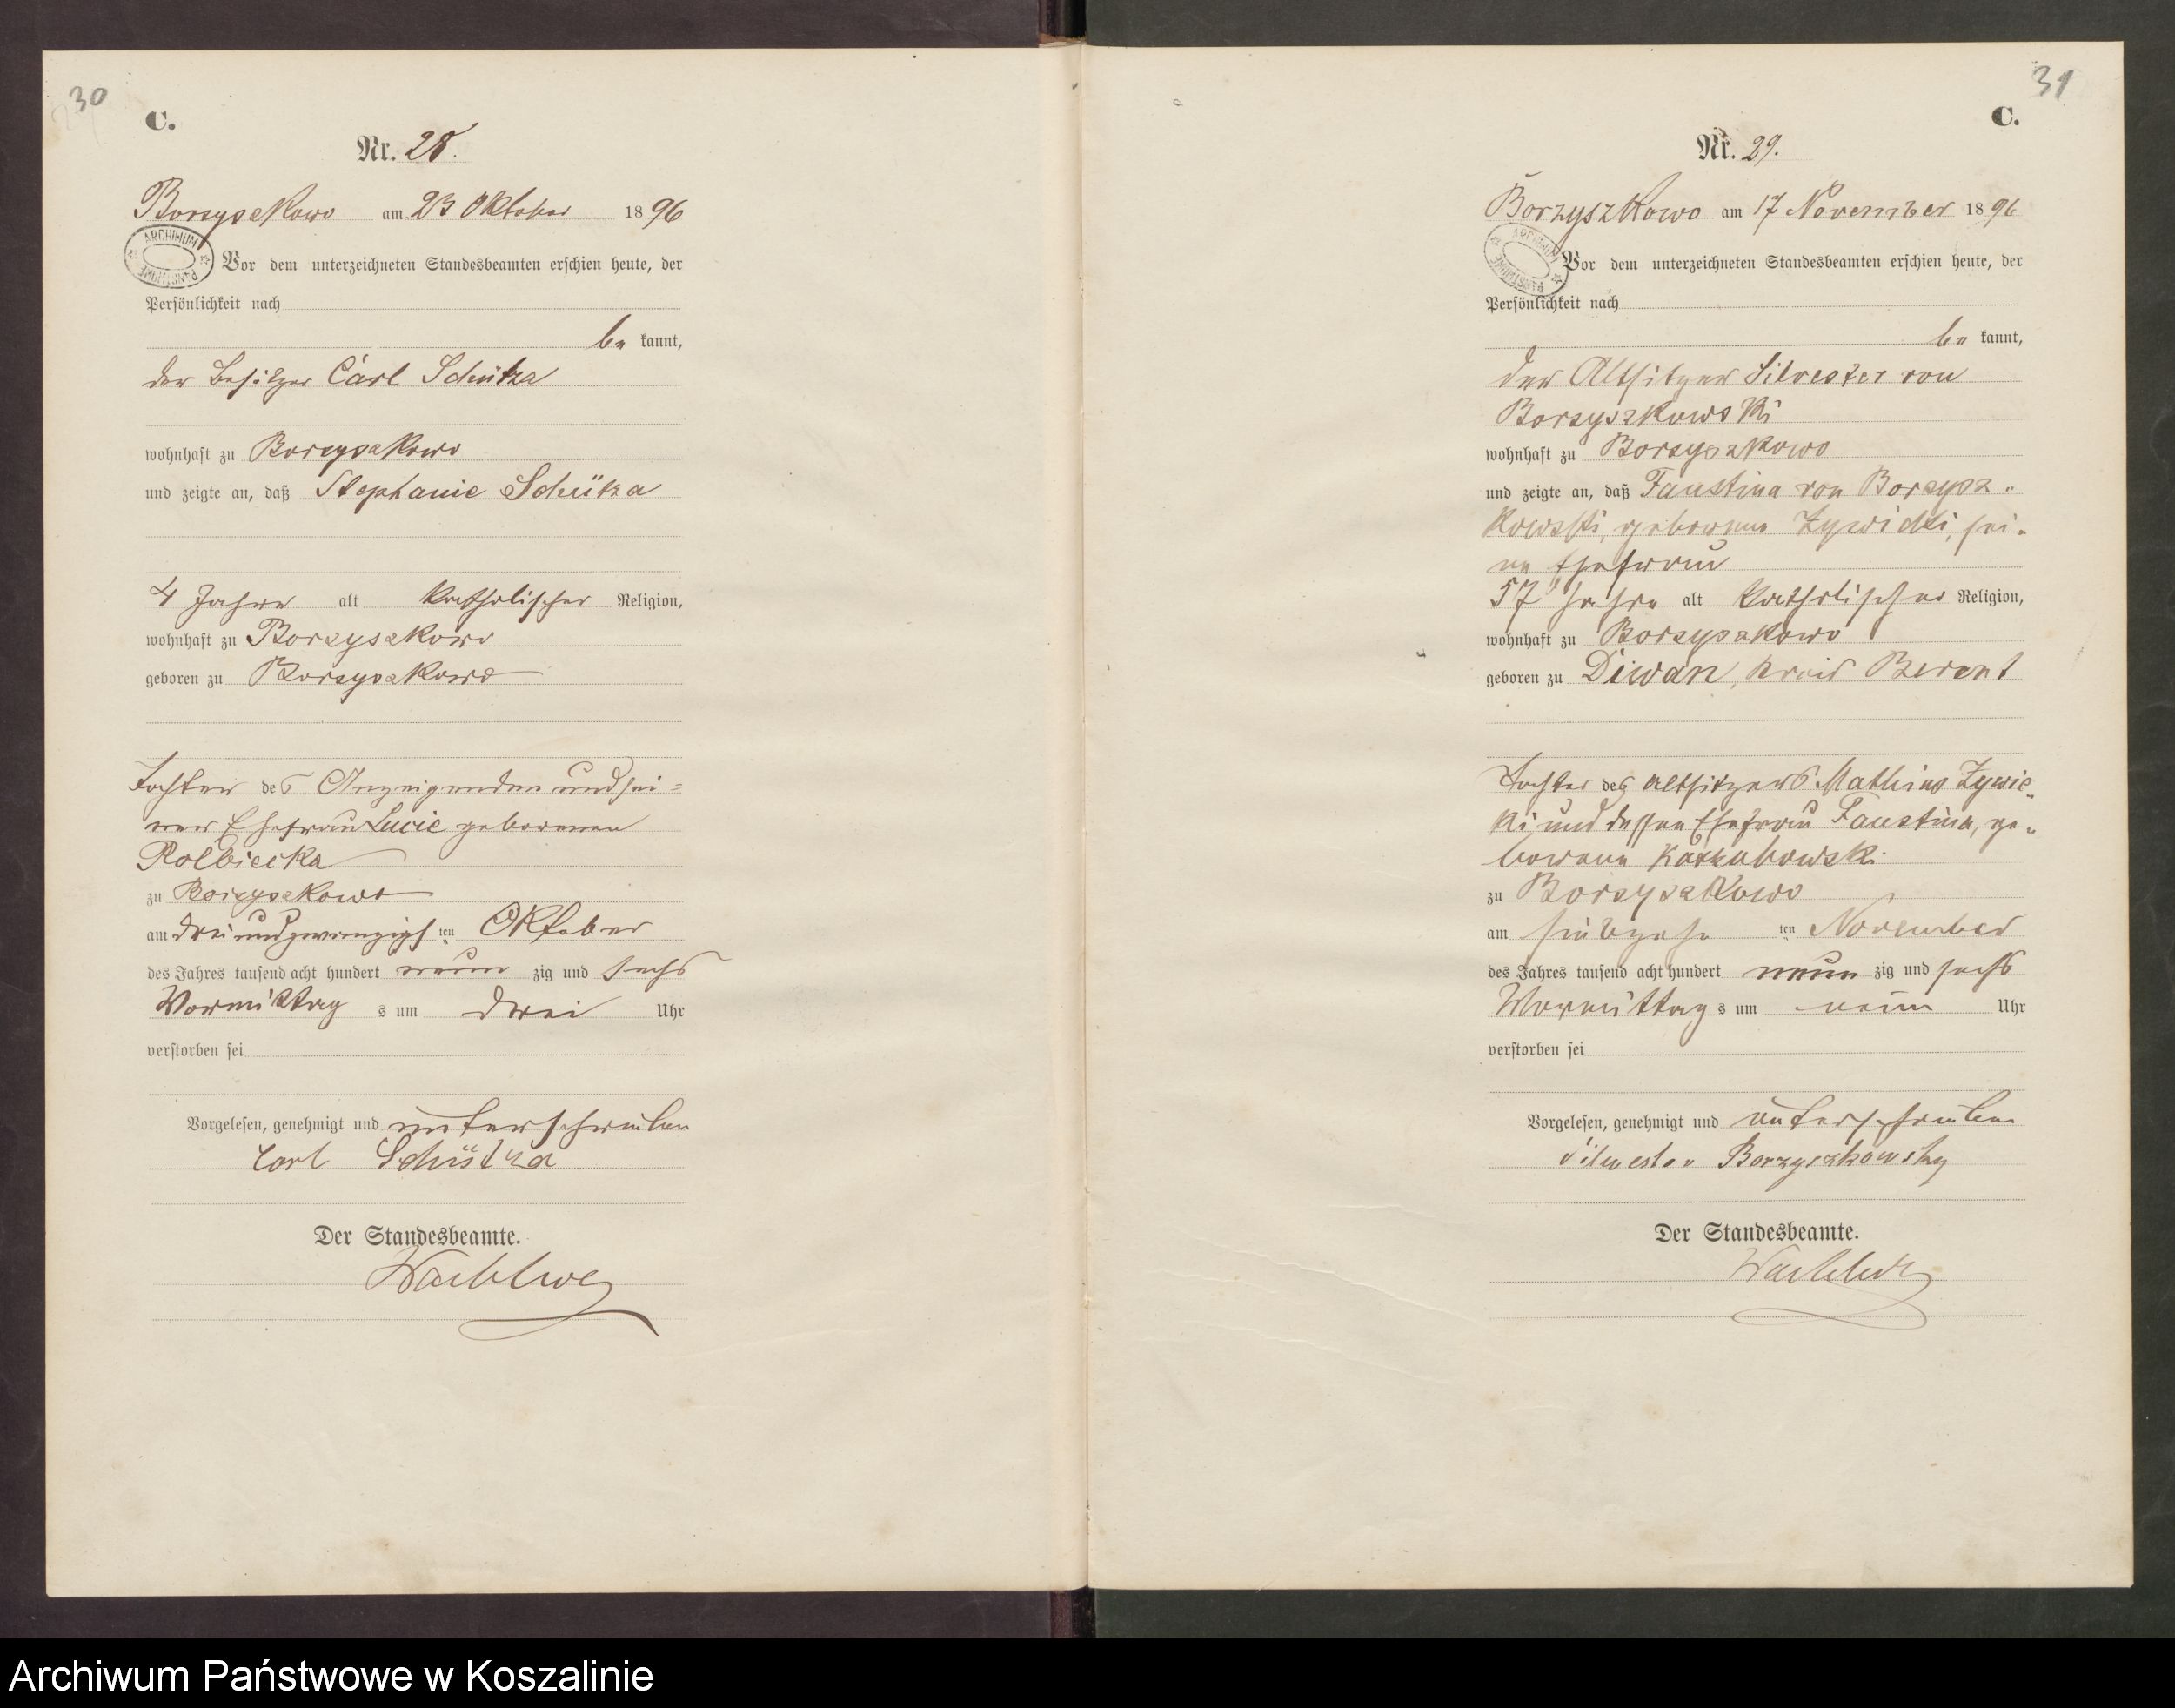 30
C.
Nr. 28.
Borzyszkowo am 23 Oktober 1896
ARCHIWUM PAŃSTWOWE
Vor dem unterzeichneten Standesbeamten erschien heute, der
Persönlichkeit nach
be kannt,
der Besitzer Carl Schütza
wohnhaft zu Borzyszkowo
und zeigte an, daß Stephanie Schütza
4 Jahre alt katholischer Religion,
wohnhaft zu Borzyszkowo
geboren zu Borzyszkowo
Tochter des Anzeigenden und sei=
ner Ehefrau Lucie geborenen
Rolbiecka
zu Borzyszkowo
am dreiundzwanzigsten Oktober
des Jahres tausend acht hundert neun zig und sechs
Vormittag s um drei Uhr
verstorben sei
Vorgelesen, genehmigt und unterschrieben
Carl Schütza
Der Standesbeamte.
31
C.
Nr. 29.
Borzyszkowo am 17 November 1896
ARCHIWUM PAŃSTWOWE
Vor dem unterzeichneten Standesbeamten erschien heute, der
Persönlichkeit nach
be kannt,
der Altsitzer Silvester von
Borzyszkowski
wohnhaft zu Borzyszkowo
und zeigte an, daß Faustina von Borzysz-
kowski, geborene Zywicki, sei-
ne Ehefrau
57 Jahre alt katholischer Religion,
wohnhaft zu Borzyszkowo
geboren zu Diwan, Kreis Berent
Tochter des Altsitzers Mathias Zywic-
ki und dessen Ehefrau Faustina, ge-
borene
zu Borzyszkowo
am siebzehn ten November
des Jahres tausend acht hundert neun zig und sechs
Vormittag s um neun Uhr
verstorben sei
Vorgelesen, genehmigt und unterschrieben
Silwester Borzyszkowsky
Der Standesbeamte.
Archiwum Państwowe w Koszalinie